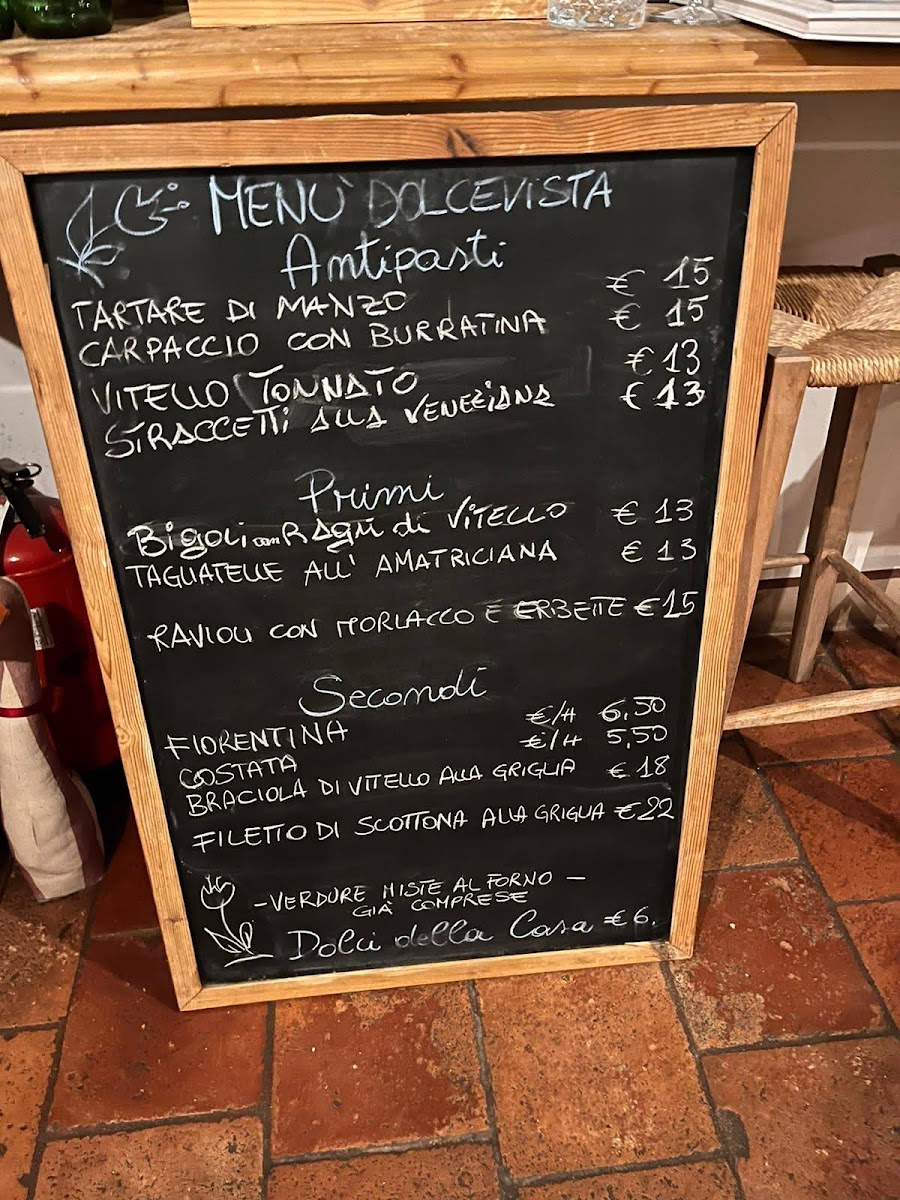 MENÙ DOLCEVISTA
Antipasti
TARTARE DI MANZO € 15
CARPACCIO CON BURRATINA € 15
VITELLO TONNATO € 13
STRACCETTI ALLA VENEZIANA € 13
Primi
Bigoli con Ragù di VITELLO € 13
TAGLIATELLE ALL' AMATRICIANA € 13
RAVIOLI CON MORLACCO E ERBETTE € 15
Secondi
FIORENTINA €/H 6,50
COSTATA €/H 5,50
BRACIOLA DI VITELLO ALLA GRIGLIA € 18
FILETTO DI SCOTTONA ALLA GRIGLIA € 22
- VERDURE MISTE AL FORNO -
GIÀ COMPRESE
Dolci della Casa € 6.